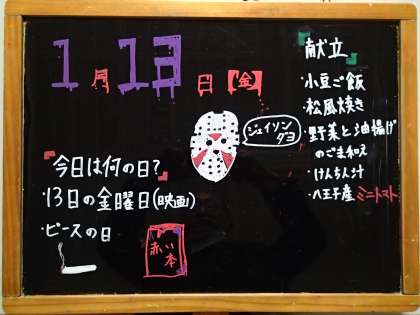 1月13日【金】
ジェイソン
ダヨ
『今日は何の日?』
・13日の金曜日(映画)
・ピースの日
赤い
本
『献立』
・小豆ご飯
・松風焼き
・野菜と油揚げ
のごま和え
・けんちん汁
・八王子産ミニトマト